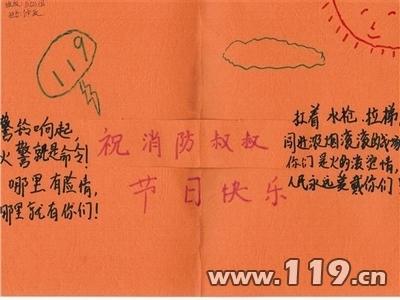 119
警铃响起,
火警就是命令!
哪里有险情,
哪里就有你们!
祝消防叔叔
节日快乐
扛着水枪、拉梯,
闯进浓烟滚滚的战场
你们是火的
人民永远爱戴你们!
www.119.cn